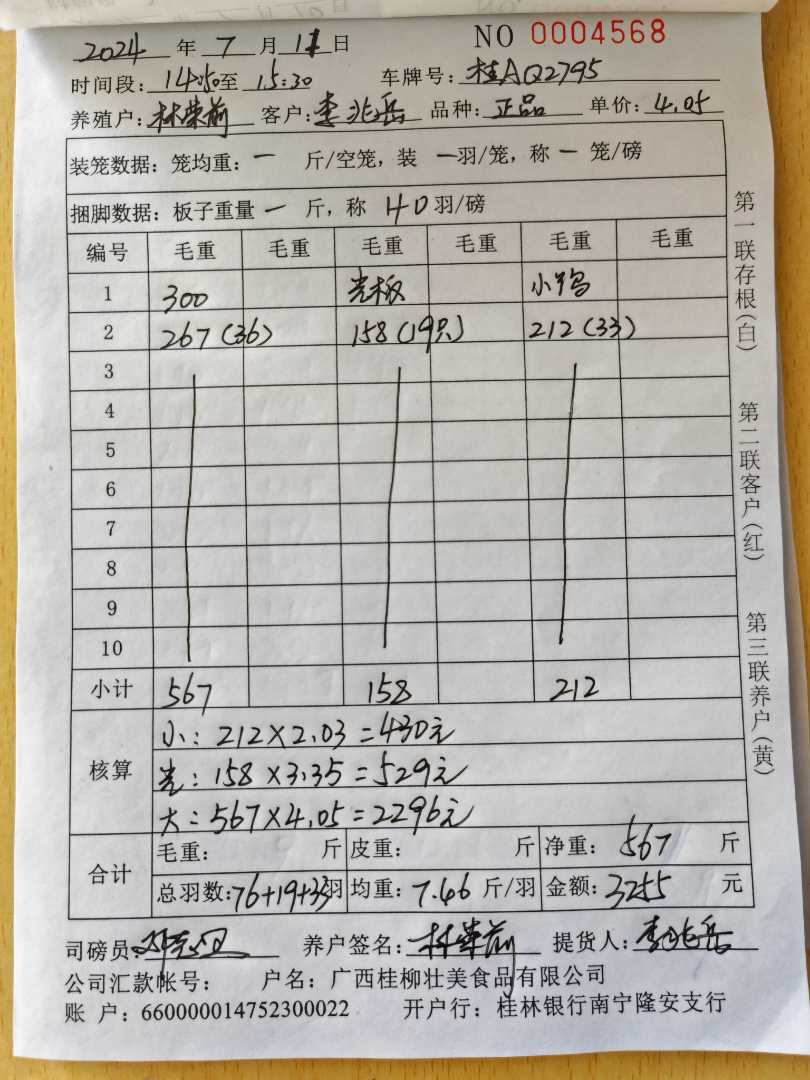 2024 年 7 月 11 日 NO 0004568
时间段: 14:50 至 15:30 车牌号: 桂AQ2795
养殖户: 林荣前 客户: 李兆岳 品种: 正品 单价: 4.05
装笼数据: 笼均重: 一 斤/空笼, 装 一 羽/笼, 称 一 笼/磅
捆脚数据: 板子重量 一 斤, 称 40 羽/磅
编号 毛重 毛重 毛重 毛重 毛重 毛重
1 300 光板 小鸭
2 267(36) 158(19只) 212(33)
3
4
5
6
7
8
9
10
小计 567 158 212
核算
小: 212×2.03=430元
光: 158×3.35=529元
大: 567×4.05=2296元
合计
毛重: 斤 皮重: 斤 净重: 567 斤
总羽数: 76+19+33 羽 均重: 7.46 斤/羽 金额: 3255 元
司磅员: 养户签名: 林荣前 提货人: 李兆岳
公司汇款帐号: 户名: 广西桂柳壮美食品有限公司
账 户: 660000014752300022 开户行: 桂林银行南宁隆安支行
第一联存根(白)
第二联客户(红)
第三联养户(黄)